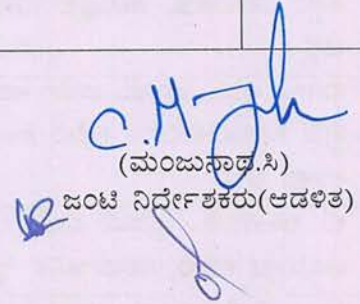 (ಮಂಜುನಾಥ.ಸಿ)
ಜಂಟಿ ನಿರ್ದೇಶಕರು(ಆಡಳಿತ)